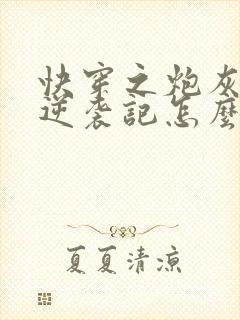 快穿之炮灰
逆袭記怎麼
夏夏清涼